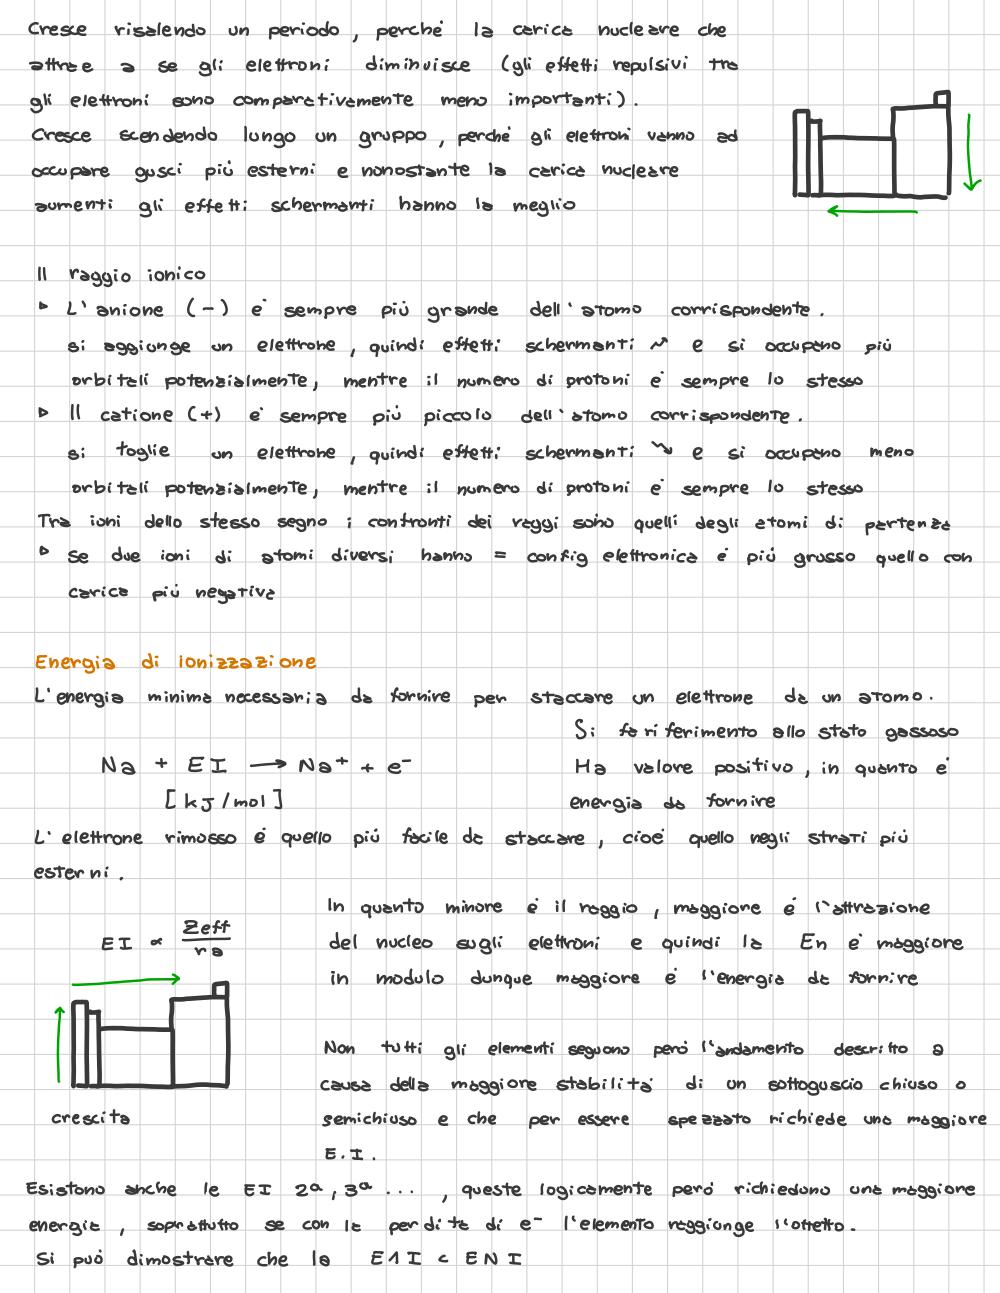 Cresce risalendo un periodo, perché la carica nucleare che
attrae a se gli elettroni diminuisce (gli effetti repulsivi tra
gli elettroni sono comparativamente meno importanti).
Cresce scendendo lungo un gruppo, perché gli elettroni vanno ad
occupare gusci più esterni e nonostante la carica nucleare
aumenti gli effetti schermanti hanno la meglio
Il raggio ionico
▹ L'anione (-) è sempre più grande dell'atomo corrispondente.
si aggiunge un elettrone, quindi effetti schermanti ↗ e si occupano più
orbitali potenzialmente, mentre il numero di protoni è sempre lo stesso
▹ Il catione (+) è sempre più piccolo dell'atomo corrispondente.
si toglie un elettrone, quindi effetti schermanti ↘ e si occupano meno
orbitali potenzialmente, mentre il numero di protoni è sempre lo stesso
Tra ioni dello stesso segno i confronti dei raggi sono quelli degli atomi di partenza
▹ se due ioni di atomi diversi hanno = config elettronica è più grosso quello con
carica più negativa
Energia di ionizzazione
L'energia minima necessaria da fornire per staccare un elettrone da un atomo.
Si fa riferimento allo stato gassoso
Na + EI → Na⁺ + e⁻
Ha valore positivo, in quanto è
[kJ/mol]
energia da fornire
L'elettrone rimosso è quello più facile da staccare, cioè quello negli strati più
esterni.
In quanto minore è il raggio, maggiore è l'attrazione
EI ∝ Zeff/ra
del nucleo sugli elettroni e quindi la En è maggiore
in modulo dunque maggiore è l'energia da fornire
Non tutti gli elementi seguono però l'andamento descritto a
causa della maggiore stabilità di un sottoguscio chiuso o
crescita
semichiuso e che per essere spezzato richiede una maggiore
E.I.
Esistono anche le EI 2ª, 3ª ..., queste logicamente però richiedono una maggiore
energia, soprattutto se con la perdita di e⁻ l'elemento raggiunge l'ottetto.
Si può dimostrare che la E1I < ENI